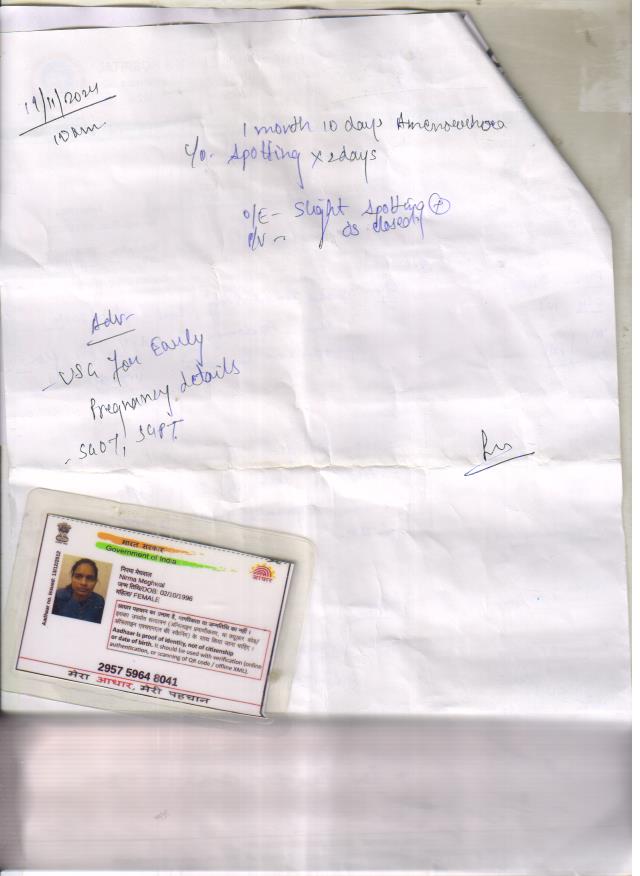 19/11/2024
10 am.
1 month 10 days Amenorrhoea
c/o. Spotting x 2days
O/E- Slight Spotting +
P/V - os closed
Adv-
- USG for Early
Pregnancy details
- SGOT, SGPT
भारत सरकार
Government of India
Aadhaar no. issued: 13/12/2012
निरमा मेघवाल
Nirma Meghwal
जन्म तिथि/DOB: 02/10/1996
महिला/ FEMALE
आधार
आधार पहचान का प्रमाण है, नागरिकता या जन्मतिथि का नहीं ।
Aadhaar is proof of identity, not of citizenship
or date of birth. It should be used with verification (online
authentication, or scanning of QR code / offline XML).
2957 5964 8041
मेरा आधार, मेरी पहचान